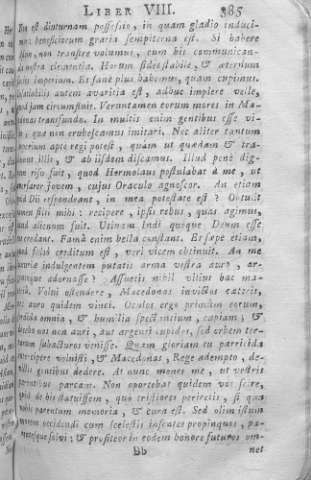 LIBER VIII. 385
est diuturnam possessio, in quam gladio induci-
mus: beneficiorum gratia sempiterna est. Si habere
Asiam, non transire volumus, cum his communican-
da est nostra clementia. Horum fides stabile, & æternum
faciet imperium. Et sane plus habemus, quam cupimus.
Insatiabilis autem avaritia est, adhuc implere velle,
quod jam circumfluit. Verumtamen eorum mores in Ma-
cedonas transfundo. In multis enim gentibus esse vi-
deo, quæ non erubescamus imitari. Nec aliter tantum
imperium apte regi potest, quam ut quædam & tra-
damus illis, & ab iisdem discamus. Illud pene dig-
num risu fuit, quod Hermolaus postulabat a me, ut
aversarer Jovem, cujus Oraculo agnoscor. An etiam
quid Dii respondeant, in mea potestate est? Obtulit
nomen filii mihi: recipere, ipsis rebus, quas agimus,
haud alienum fuit. Utinam Indi quoque Deum esse
me credant. Fama enim bella constant. Et sæpe etiam,
quod falso creditum est, veri vicem obtinuit. An me
luxuriæ indulgentem putatis arma vestra auro, ar-
gentoque adornasse? Assuetis nihil vilius hac ma-
teria. Volui ostendere, Macedonas invictos cæteris,
nec auro quidem vinci. Oculos ergo primum eorum,
sordida omnia, & humilia spectantium, capiam; &
docebo nos non auri, aut argenti cupidos, sed orbem ter-
rarum subacturos venisse. Quam gloriam tu parricida
intercipere voluisti, & Macedonas, Rege adempto, de-
victis gentibus dedere. At nunc mones me, ut vestris
parentibus parcam. Non oportebat quidem vos scire,
quid de his statuissem, quo tristiores periretis, si qua
vobis parentum memoria, & cura est. Sed olim istum
morem occidendi cum scelestis insontes propinquos, pa-
rentesque solvi; & profiteor in eodem honore futuros om-
Bb nes